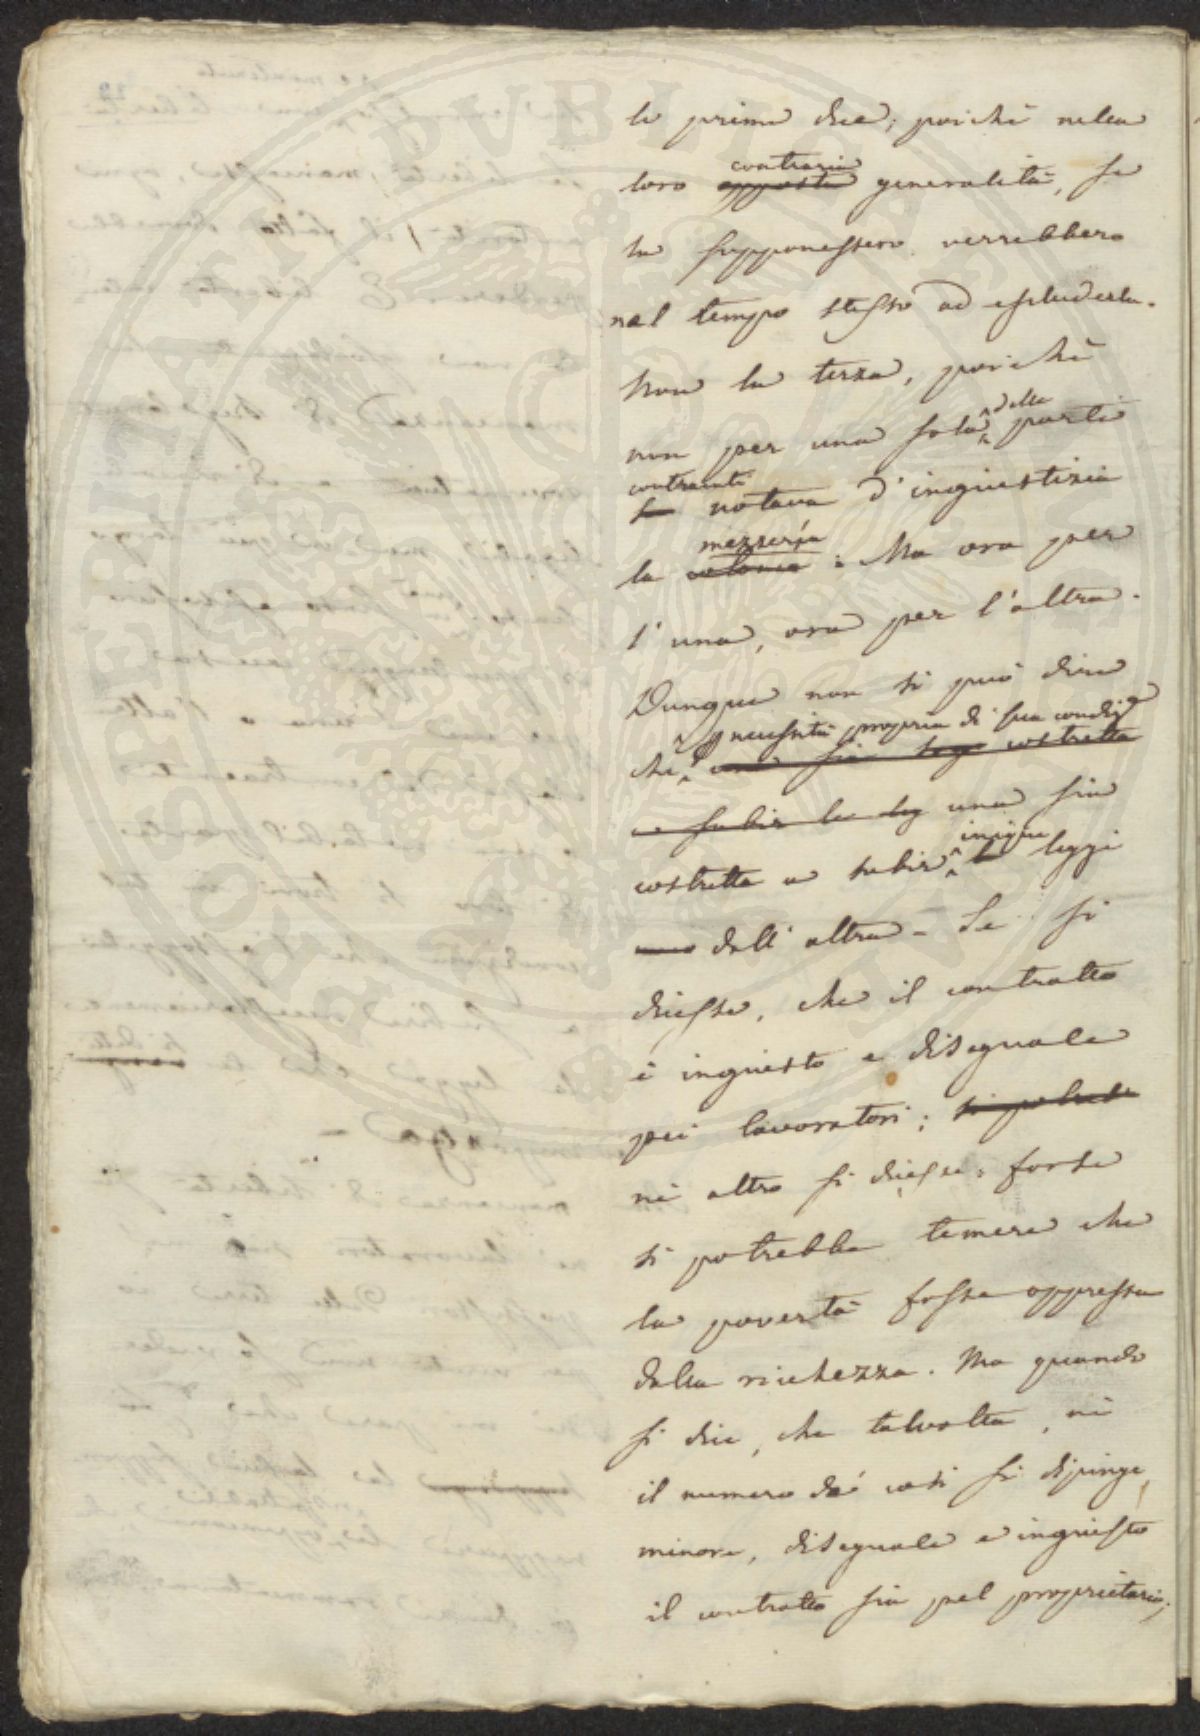 le prime due; poichè nella
contraria
loro opposta generalità, se
la supponessero verrebbero
nel tempo stesso ad escluderla.
Non la terza, poichè
delle
non per una sola parti
contraenti
notava d'ingiustizia
mezzeria
la colonia: Ma ora per
l'una, ora per l'altra.
Dunque non si può dire
necessità propria di sua condiz
che una sia costretta
a subir la leg una sia
inique
costretta a subir le leggi
dall'altra - Se si
dicesse, che il contratto
è ingiusto e diseguale
pei lavoratori; si potrebbe
nè altro si dicesse: forse
si potrebbe temere che
la povertà fosse oppressa
dalla ricchezza. Ma quando
si dice, che talvolta, nè
il numero de' casi si dipinge
minore, diseguale e ingiusto
il contratto sia pel proprietario;